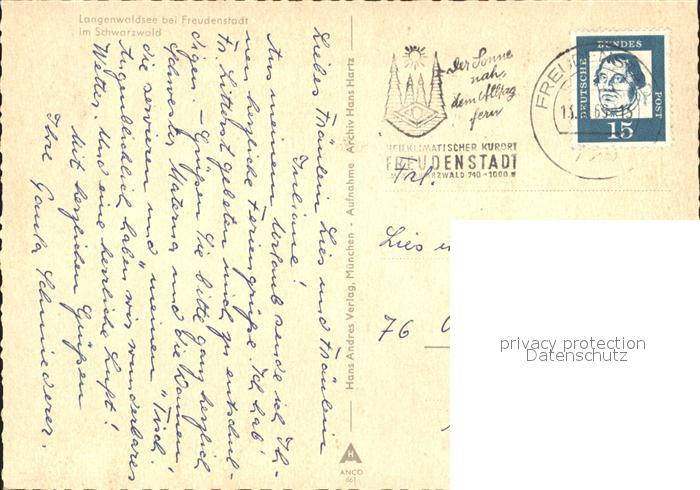 Langenwaldsee bei Freudenstadt
im Schwarzwald
Liebes Fräulein Lies und Fräulein
Juliane!
Aus meinem Urlaub sende ich Ih-
nen herzliche Feriengrüße. Ich hab'
Fr. gebeten mich zu entschul-
digen. - Grüßen Sie bitte ganz herzlich
Schwester Materna und die Damen,
die servieren und "meinen" Tisch.
Augenblicklich haben wir wunderbares
Wetter. Und eine herrliche Luft!
Mit herzlichen Grüßen
Ihre
Hans Andres Verlag, München - Aufnahme Archiv Hans Hartz
ANCO
661
Der Sonne
nah,
dem Alltag
fern
HEILKLIMATISCHER KURORT
FREUDENSTADT
SCHWARZWALD 740-1000 M
DEUTSCHE BUNDESPOST
15
Frl.
Lies u
76
privacy protection
Datenschutz